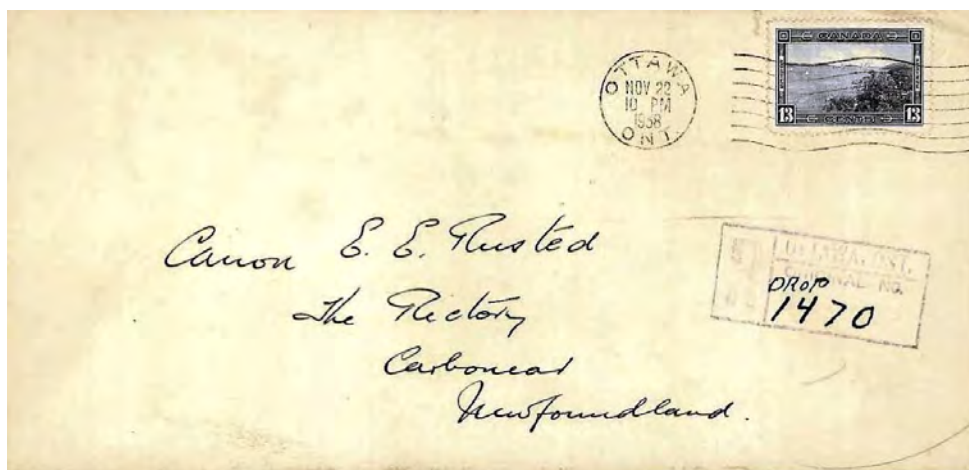 OTTAWA
NOV 22
10 PM
1938
ONT.
CANADA
13 CENTS 13
Canon E. E. Rusted
The Rectory
Carbonear
Newfoundland.
OTTAWA, ONT.
ORIGINAL NO.
DROP
1470